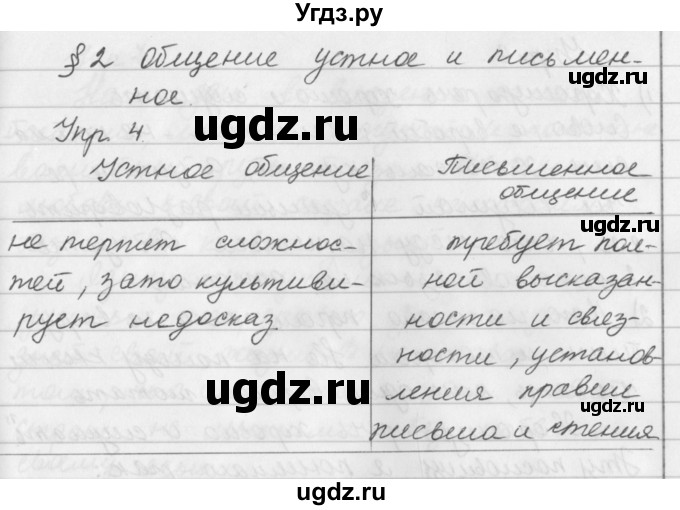 Угдз.ру
§ 2 Общение устное и письмен-
ное.
Упр. 4.
ugdz.ru
Устное общение
Письменное
общение
не терпит сложнос-
тей, зато культиви-
рует недосказ.
требует пол-
ной высказан-
ности и связ-
ности, установ-
ления правил
письма и чтения
ugdz.ru
ugdz.ru
ugdz.ru
ugdz.ru
ugdz.ru
ugdz.ru
ugdz.ru